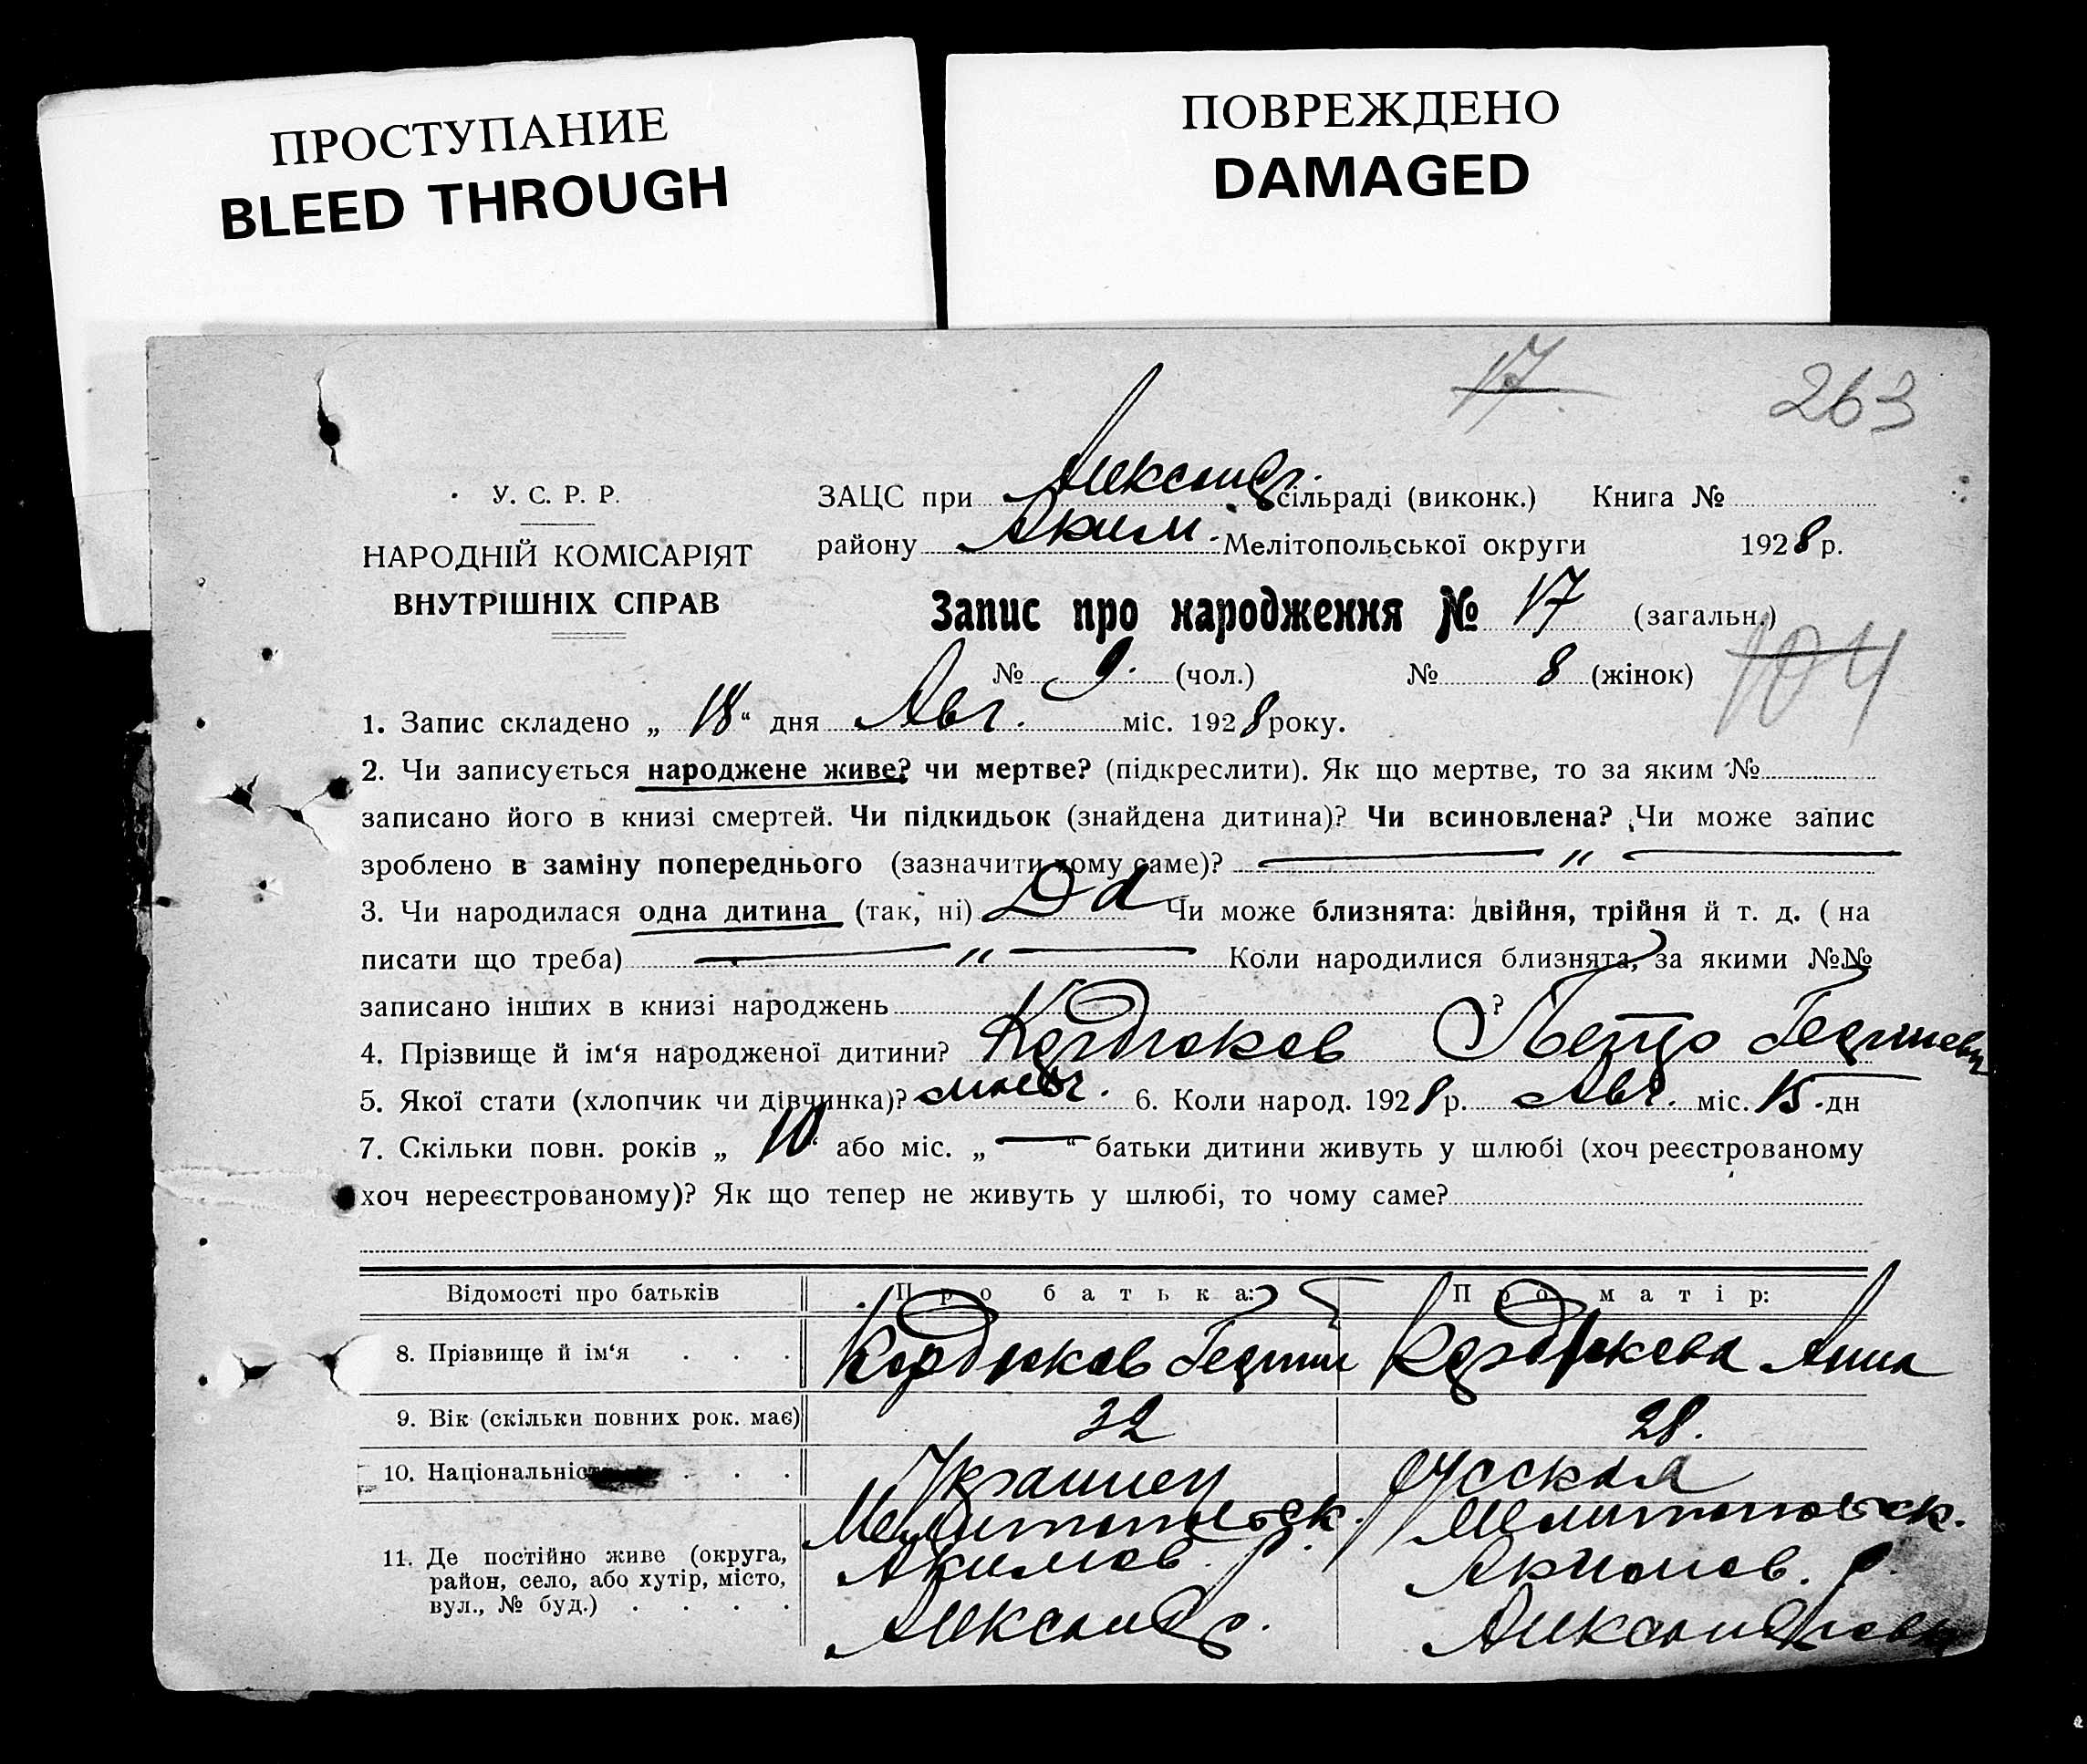 ПРОСТУПАНИЕ
BLEED THROUGH
ПОВРЕЖДЕНО
DAMAGED
17
263
У. С. Р. Р.
НАРОДНІЙ КОМІСАРІЯТ
ВНУТРІШНІХ СПРАВ
ЗАЦС при Александр. сільраді (виконк.) Книга №
району Аким. Мелітопольської округи 1928 р.
Запис про народження № 17 (загальн.)
104
№ 9. (чол.) № 8 (жінок)
1. Запис складено „ 18 “ дня Авг. міс. 1928 року.
2. Чи записується народжене живе? чи мертве? (підкреслити). Як що мертве, то за яким №
записано його в книзі смертей. Чи підкидьок (знайдена дитина)? Чи всиновлена? Чи може запис
зроблено в заміну попереднього (зазначити чому саме)? — „ —
3. Чи народилася одна дитина (так, ні) Да Чи може близнята: двійня, трійня й т. д. (на
писати що треба) — „ — Коли народилися близнята, за якими №№
записано інших в книзі народжень ?
4. Прізвище й ім‘я народженої дитини? Кордюков Петро
5. Якої стати (хлопчик чи дівчинка)? мальч. 6. Коли народ. 1928 р. Авг. міс. 15 дн
7. Скільки повн. років „ 10 “ або міс. „ — “ батьки дитини живуть у шлюбі (хоч реєстрованому
хоч нереєстрованому)? Як що тепер не живуть у шлюбі, то чому саме?
Відомості про батьків Про батька: Про матір:
8. Прізвище й ім‘я . . . Кордюков Георгий Кордюкова Анна
9. Вік (скільки повних рок. має) 32 28.
10. Національність . . . Украинец русская
11. Де постійно живе (округа, район, село, або хутір, місто, вул., № буд.) . . . .
Мелитопольск. Мелитопольск.
Акимов. р. Акимов. р.
Александр. Александровка